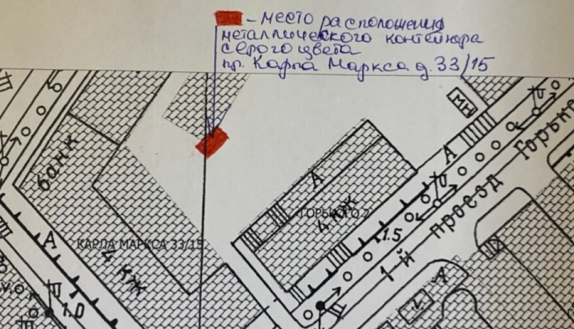 - место расположения
металлического контейнера
серого цвета
пр. Карла Маркса д. 33/15
МН
банк
А
А
ГОРЬКОГО 2
А
КАРЛА МАРКСА 33/15
4 кж
1.5
1-й проезд Горьк
А
1.0